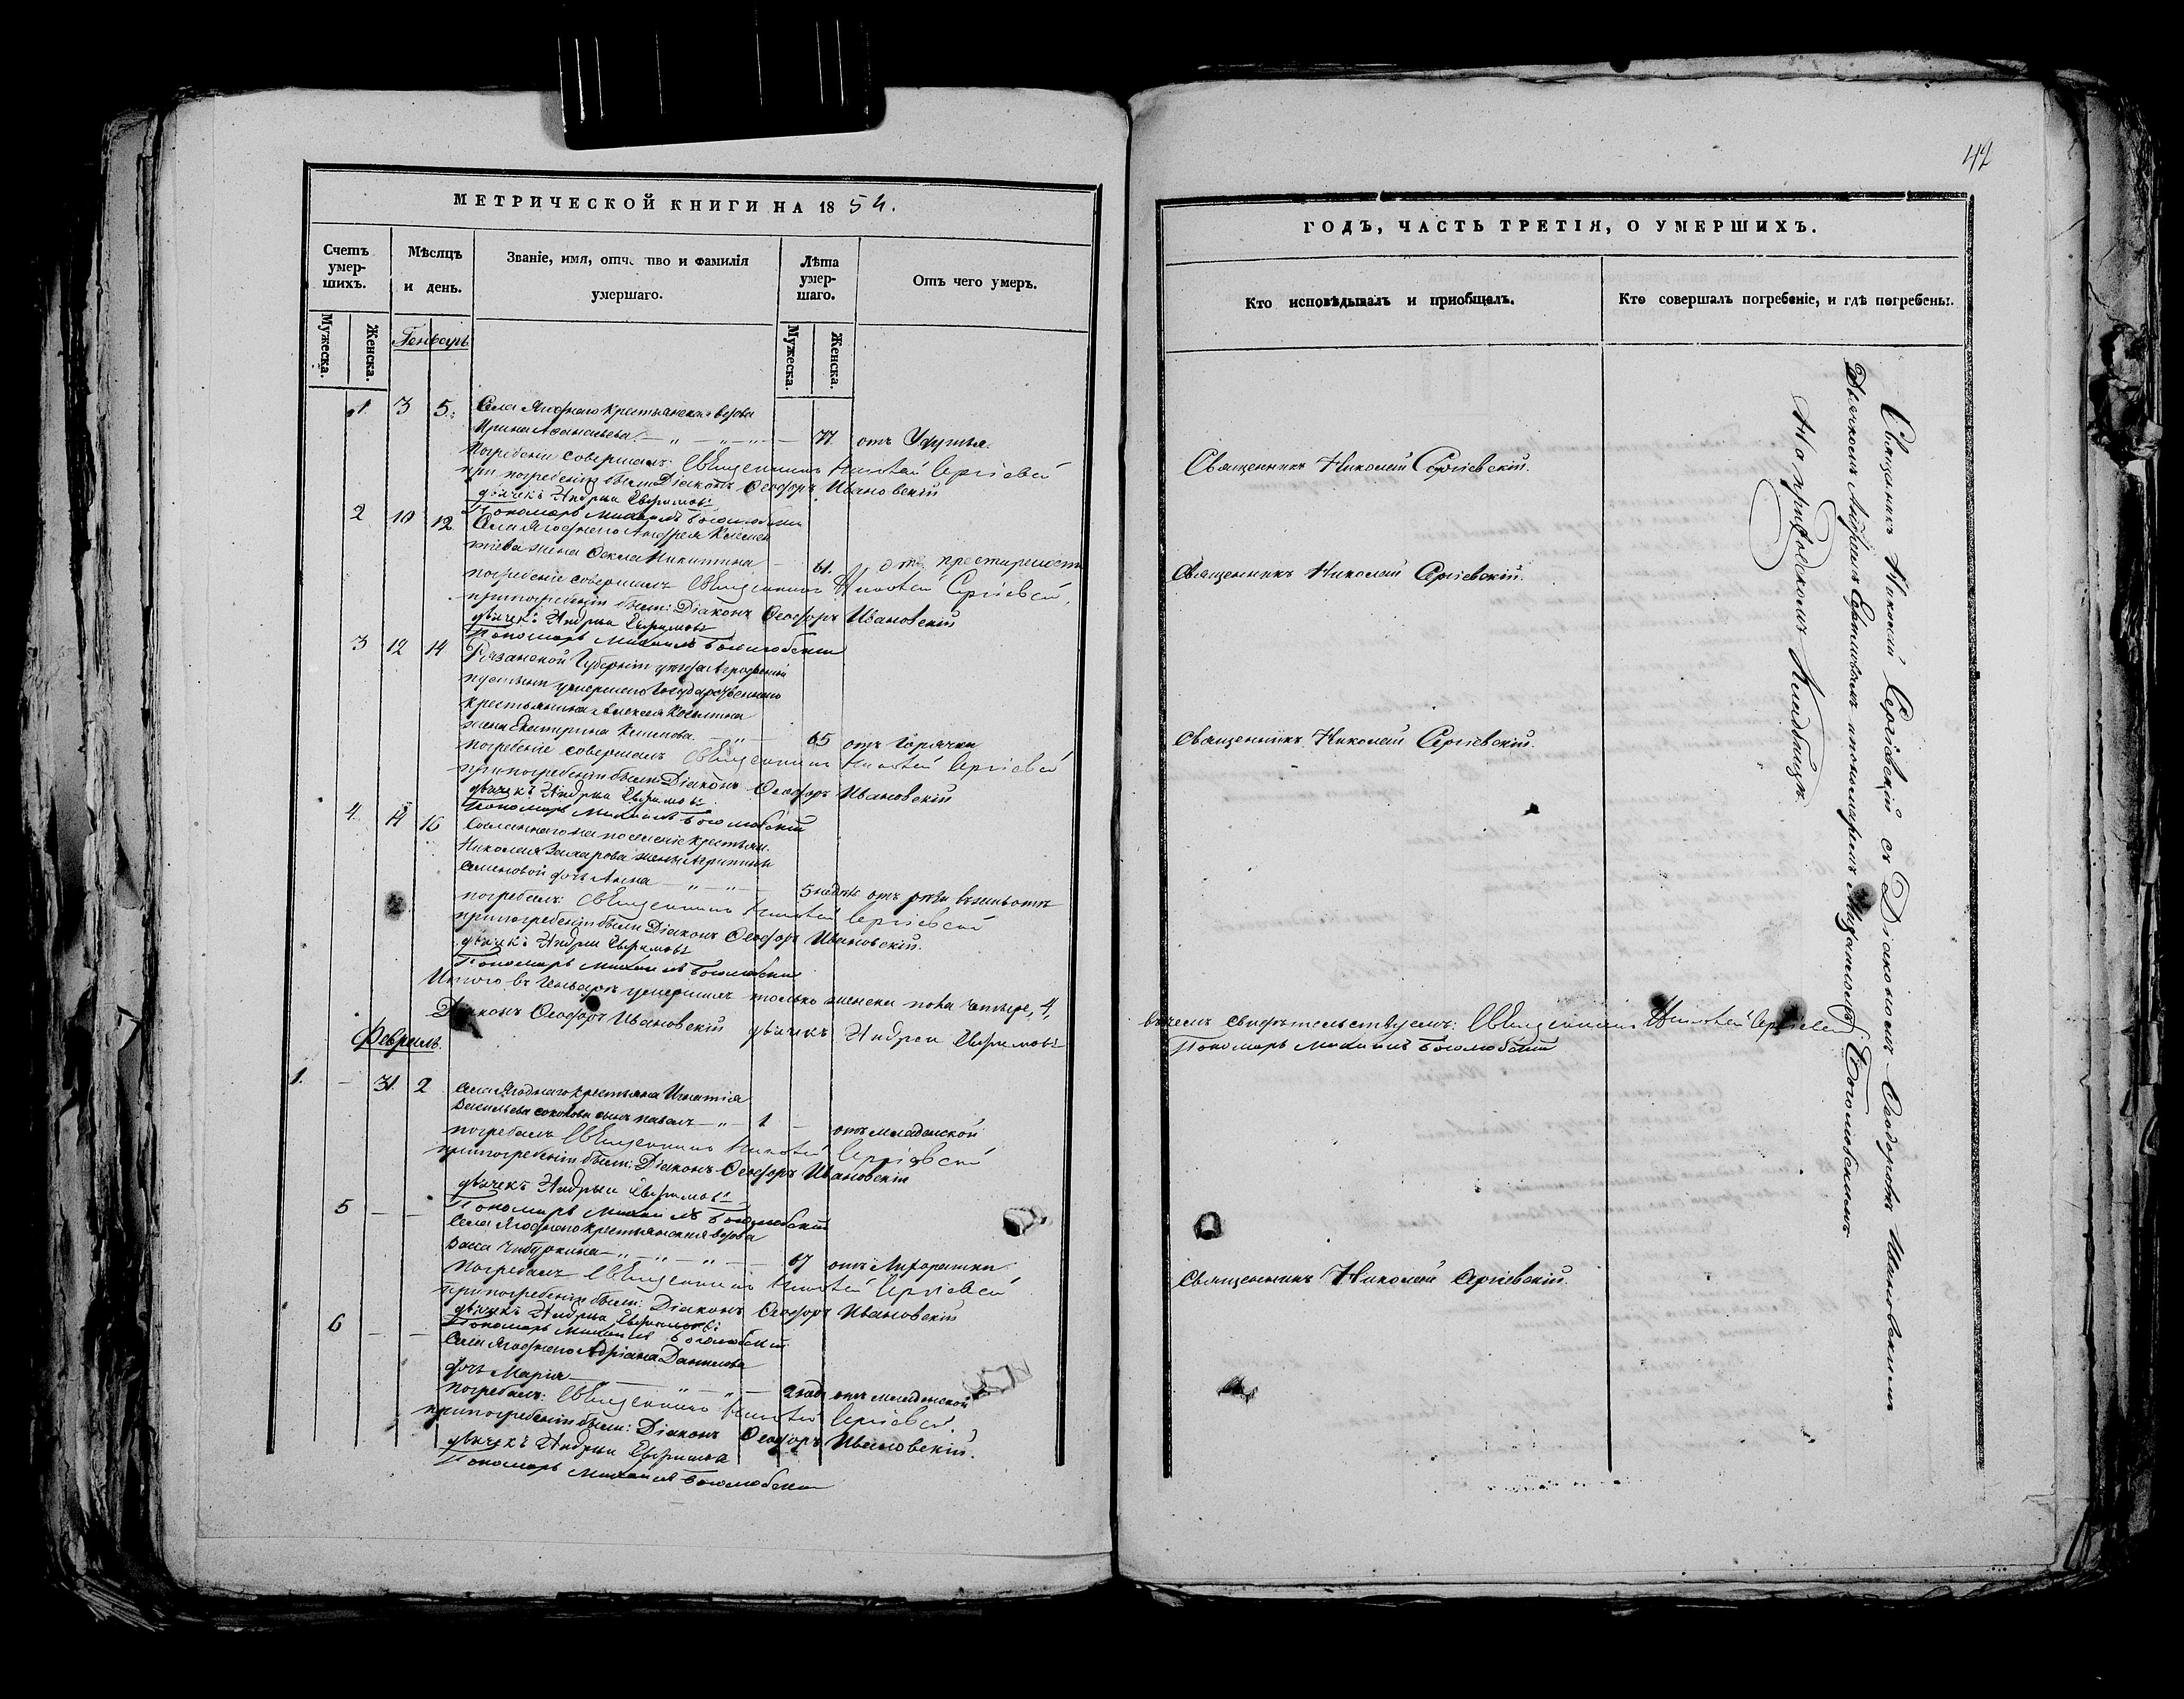 МЕТРИЧЕСКОЙ КНИГИ НА 1854.
Счетъ умер-шихъ.
Мужеска.
Женска.
Мѣсяцъ и день.
Званіе, имя, отчество и фамилія умершаго.
Лѣта умер-шаго.
Мужеска.
Женска.
Отъ чего умеръ.
Генварь
1. 3 5. Села Ягоднаго крестьянская вдова
Ирина Афанасьева 77 отъ Удушья.
Погребеніе совершалъ: Священникъ Николай Сергіевскій
при погребеніи были Діаконъ Ѳеодоръ Ивановскій
дьячекъ Андрей Ефримовъ
Пономарь Михаилъ Боголюбскій
2 10 12 Села Ягоднаго Андрея Климен
тіева жена Ѳекла Никитина 61. отъ престарелости
погребеніе совершалъ Священникъ Николай Сергіевскій,
при погребеніи были: Діаконъ Ѳеодоръ Ивановскій
дьячекъ Андрей Ефримовъ
Пономарь Михаилъ Боголюбскій
3 12 14 Рязанской Губерніи уезда
пустыни умершаго Государственнаго
крестьянина Алексея
жена Екатерина 65 отъ Горячки
погребеніе совершалъ Священникъ Николай Сергіевскій
при погребеніи были Діаконъ Ѳеодоръ Ивановскій
дьячекъ Андрей Ефримовъ
Пономарь Михаилъ Боголюбскій
4. 14 16 Сосланнаго на поселеніе крестьян.
Николая Захарова жены Агрипины
Семеновой дочь Анна 5 недель отъ рези въ животе
погребалъ: Священникъ Николай Сергіевской
при погребеніи были Діаконъ Ѳеодоръ Ивановскій.
дьячекъ Андрей Ефримовъ
Пономарь Михаилъ Боголюбскій
Итого въ Генваре умершихъ только женска пола четыре, 4,
Діаконъ Ѳеодоръ Ивановскій дьячекъ Андрей Ефримовъ
Февраль.
1. 31. 2 Села Ягоднаго крестьяна Игнатія
Васильева Соколова сынъ Павелъ 1 отъ младенской
погребалъ Священникъ Николай Сергіевскій
при погребеніи были: Діаконъ Ѳеодоръ Ивановскій
дьячекъ Андрей Ефримовъ
Пономарь Михаилъ Боголюбскій
5 Села Ягоднаго крестьянская вдова
Васса 67 отъ Лихорадки
Погребалъ Священникъ Николай Сергіевской
при погребеніи были: Діаконъ Ѳеодоръ Ивановскій
дьячекъ Андрей Ефримовъ
Пономарь Михаилъ Боголюбскій
6 Села Ягоднаго Адріана Данилова
дочь Марія отъ младенской
погребалъ: Священникъ Николай Сергіевской
при погребеніи были: Діаконъ Ѳеодоръ Ивановскій.
дьячекъ Андрей Ефримовъ
Пономарь Михаилъ Боголюбскій
ГОДЪ, ЧАСТЬ ТРЕТІЯ, О УМЕРШИХЪ.
Кто исповѣдывалъ и пріобщалъ.
Кто совершалъ погребеніе, и гдѣ погребены.
Священникъ Николай Сергіевскій.
Священникъ Николай Сергіевскій.
Священникъ Николай Сергіевскій.
въ чемъ свидѣтельствуемъ: Священникъ Николай Сергіевскій
Пономарь Михаилъ Боголюбскій
Священникъ Николай Сергіевскій.
Священникъ Николай Сергіевскій съ Діакономъ Ѳеодоромъ Ивановскимъ
Дьячкомъ Андреемъ и пономаремъ Михаиломъ Боголюбскимъ
На приходскомъ Кладбищѣ.